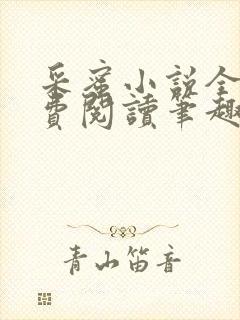 采蜜小说全
費閱讀筆趣
青山笛音